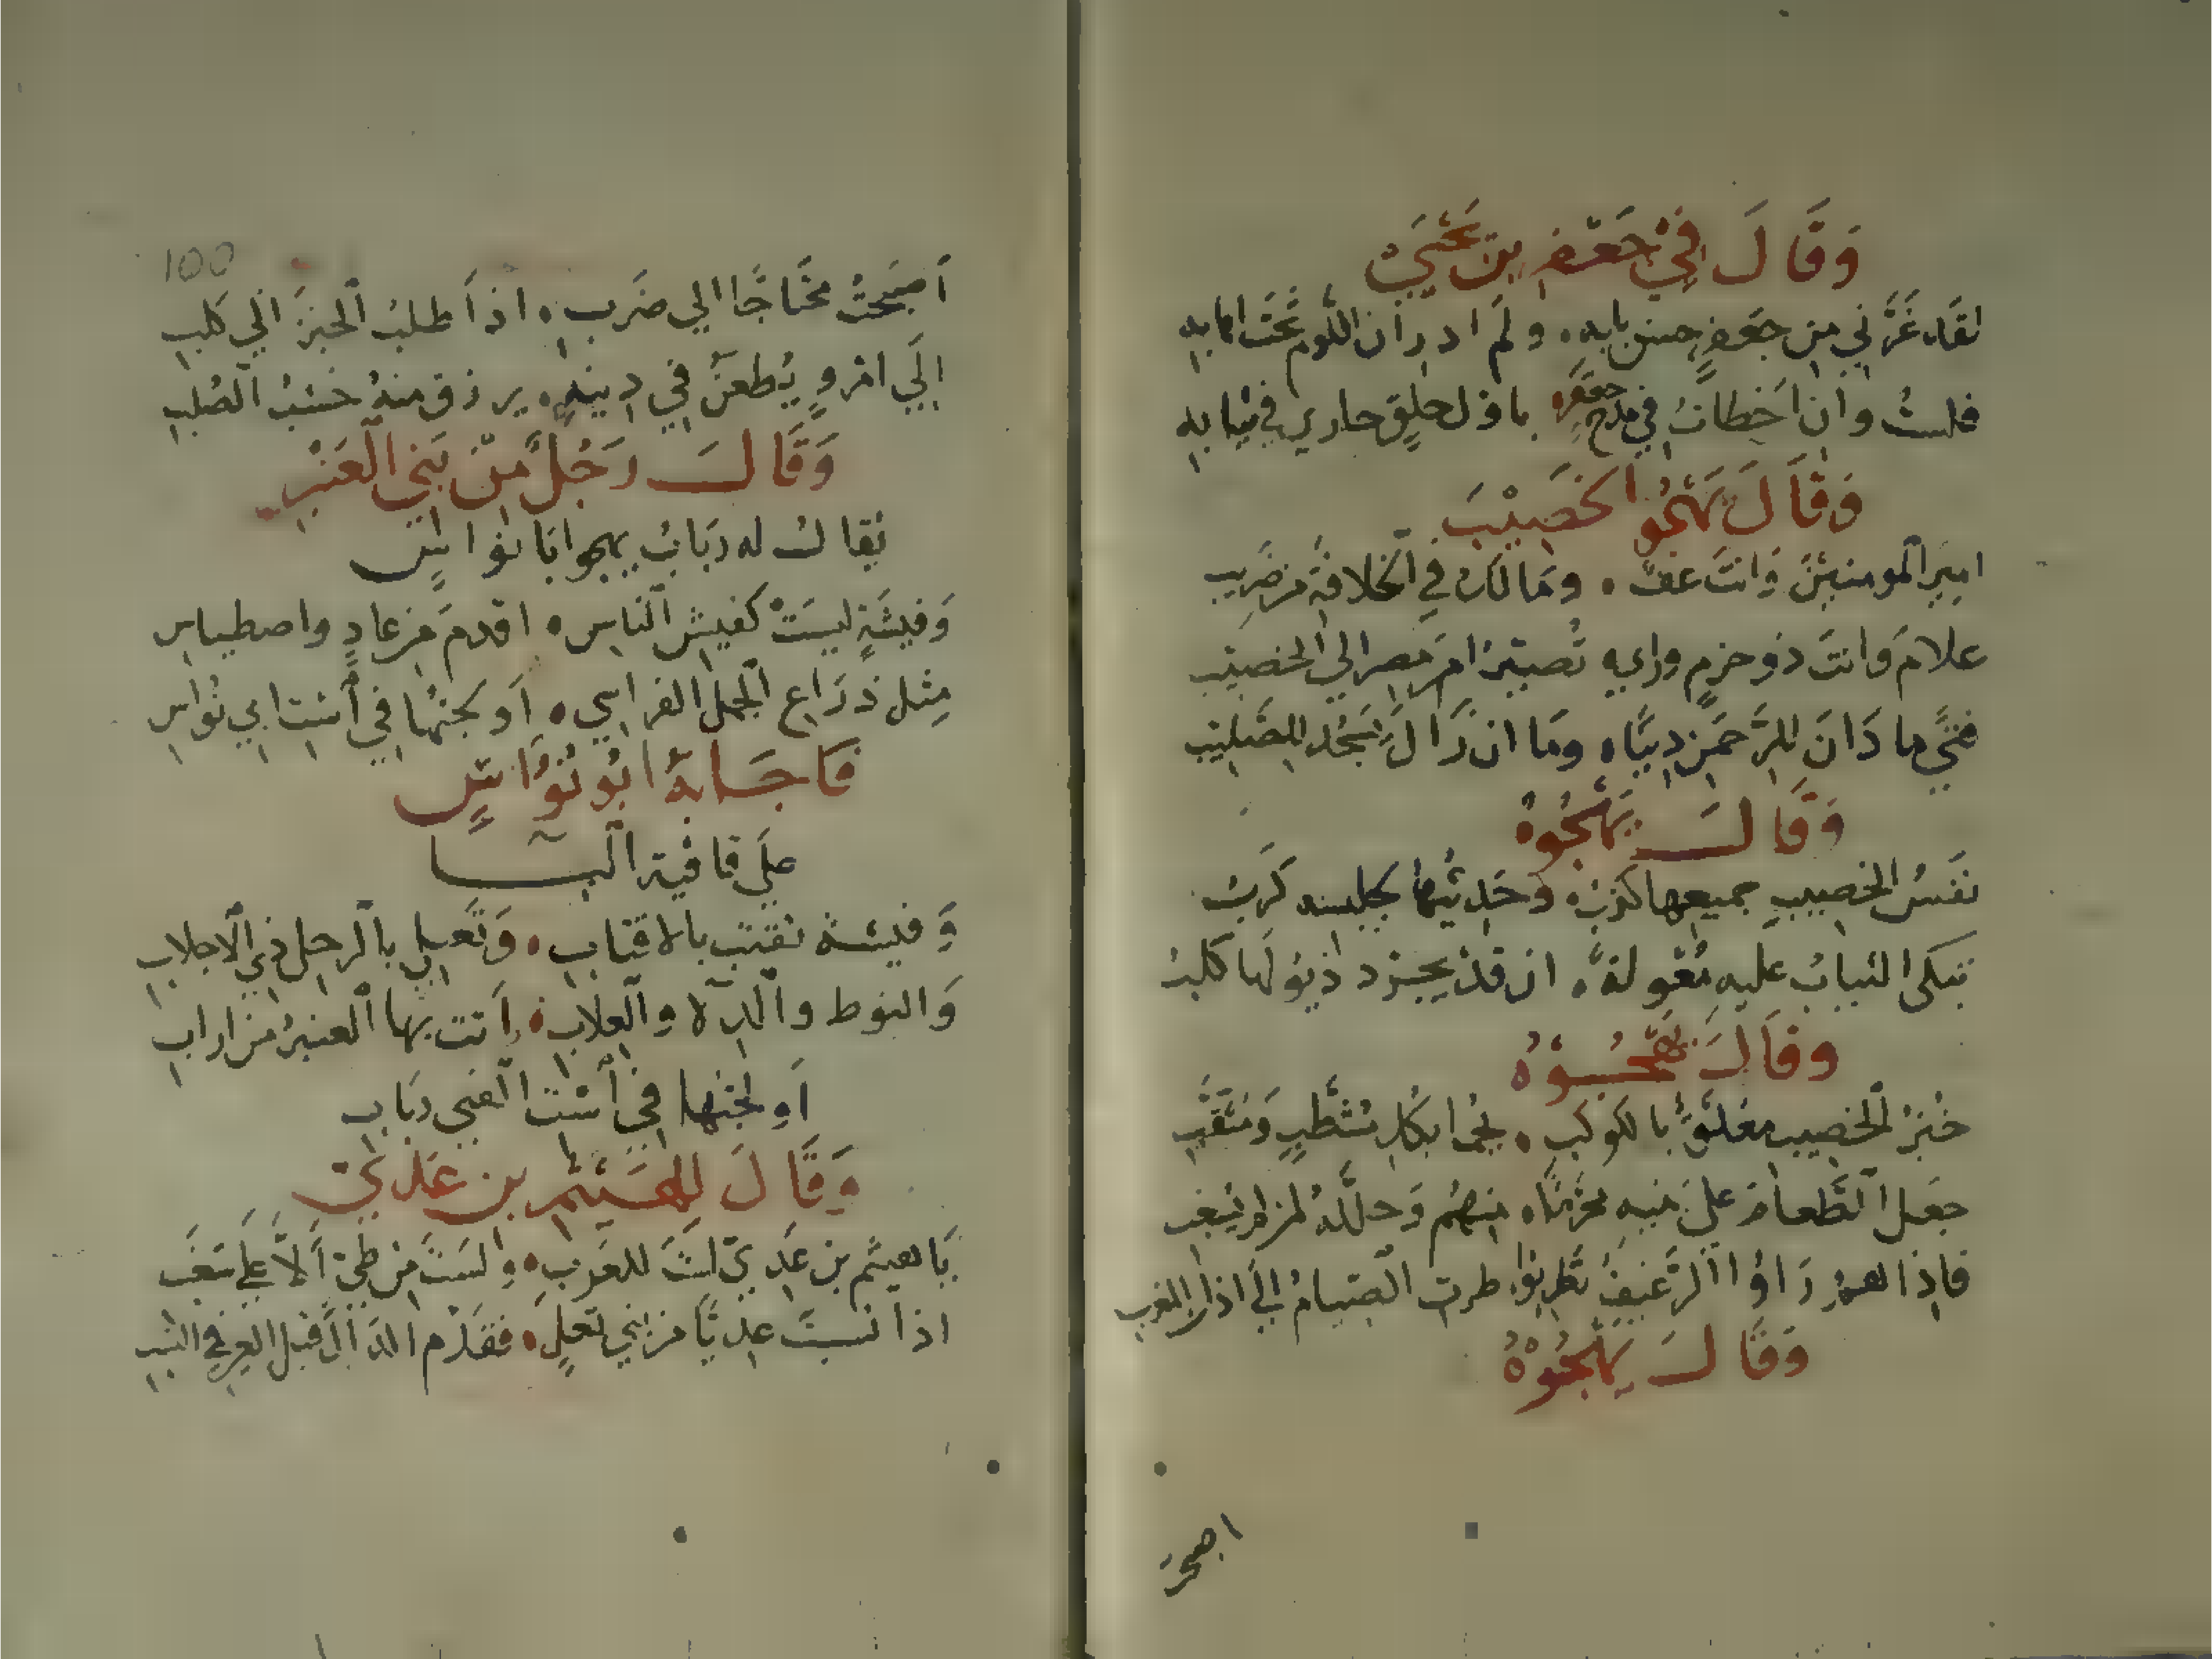 وَقَالَ فِي جَعْفَرِ بنِ يَحْيَي
لقَد غَرَّني من جَعفرٍ حسن بابه ولَم ادرِ ان اللُّوم تَحْتَ اهابه
فلستُ وان اَخطاتُ في مدح جعفرٍ باول حلِقٍ حاري في ثيابه
وَقَالَ يَهْجُو الخَصِيْبَ
اميرَ المومنينَ وَانتَ عفّ ومَا لكَ في الخلافةِ من ضَرِيب
علامَ وَانتَ ذو حزمٍ وراي تُصيّرُ امرَ مصر الي الخصيب
فتيً ما دَانَ للرَّحمَن دينًا ومَا ان زَالَ يَسجُد للصَّليب
وَقَالَ يَهْجُوهُ
نفَسُ الخصيبِ جميعها كذب وحَديثها لجليسه كَربُ
تبكى الثيابُ عليه مُعْولةً ان قد يجرد ذيولها كلبُ
وقَالَ يَهْجُوهُ
خُبزُ الخصيب معلقٌ بالكوكب يُحما بكل مشطبٍ وَمثَقَّب
جعَل الطَّعامَ علَى بنيه محرّمًا منهُم وَحلّلهُ لمن لم يسغب
فاِذا همُ رَاوُا الرَّغيفَ تطربُوا طرب الصيامُ اليَ اذان المغرب
وَقَالَ يَهْجُوْهُ
اصبحتَ
100
اَصبَحتُ محْتَاجًا الي ضَرب اذ اَطلبُ الخبزَ الي كلب
الِي امرءٍ يُطعنُ في دينهِ يرزق منهُ خشبُ الصُلب
وَقَالَ رَجُلٌ مِنْ بَنِي العَنْبَرِ
يُقالُ له ربَابُ يهجوا ابَا نواسٍ
وَفيشَةٍ ليسَتْ كفيش الناس اقدمَ من عادٍ واصطياس
مِثل ذرَاع الجمل الفراسي اَولجتُها في اُست ابي نُواس
فَاجَابهُ ابُو نُوَاسٍ
علَي قافية البا
وَفيشة نقتب بالاقتاب وَتَعبي بالرحل ذي الاجلاب
وَالنوط والدّلا والعلاب اَتت بها العنبرُ من اراب
اَولجتُها في اُست الفتى ربَابِ
وَقَالَ للهَيْثَمِ بن عَدِيّ
يَا هيثَم بن عَدِيّ لستَ للعَربِ وَلستَ من طيّ اَلاَّ عَلَي شغَب
اذا نسبتَ عديًّا من بني ثعلٍ فقدّم الدَّال قبلَ العين في النسب